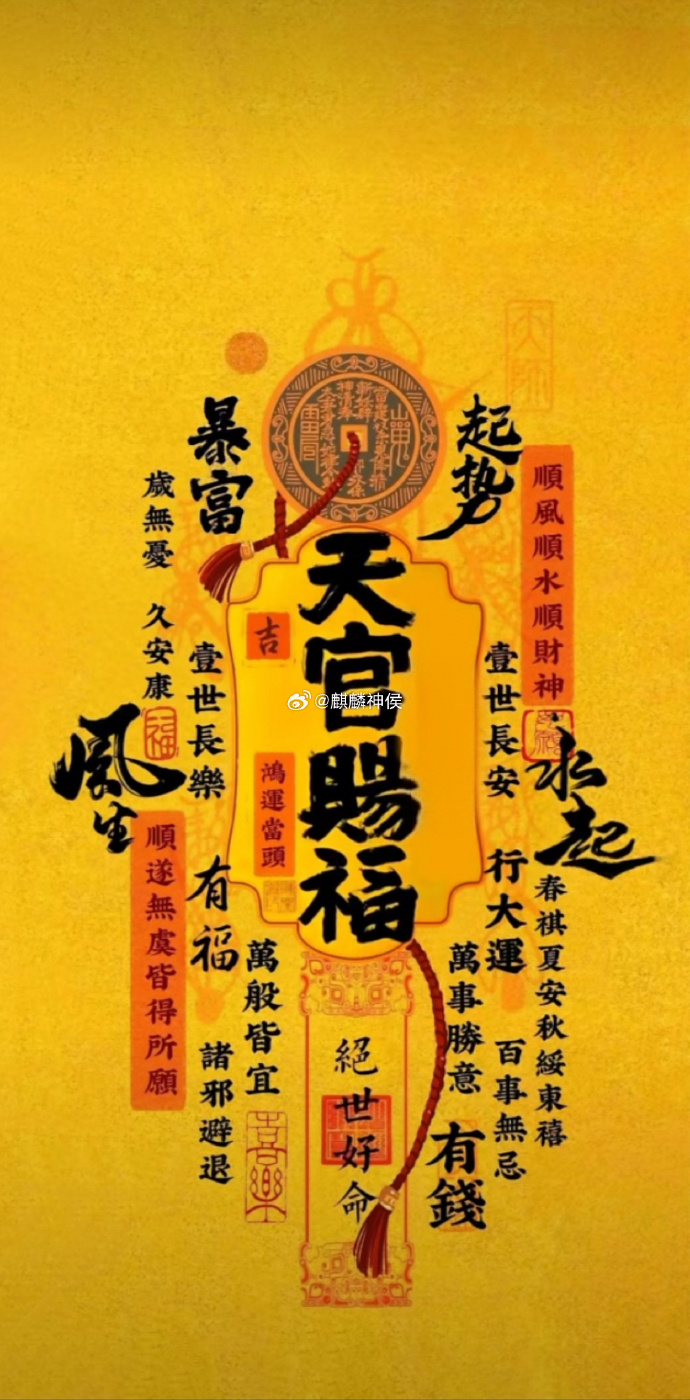 起势
暴富
順風順水順財神
歲無憂 久安康
天官賜福
吉
鴻運當頭
@麒麟神侯
壹世長安
壹世長樂
永起
風生
福
順遂無虞皆得所願
行大運
有福
春祺夏安秋綏東禧
萬事勝意
萬般皆宜
百事無忌
諸邪避退
有錢
絕世好命
喜樂